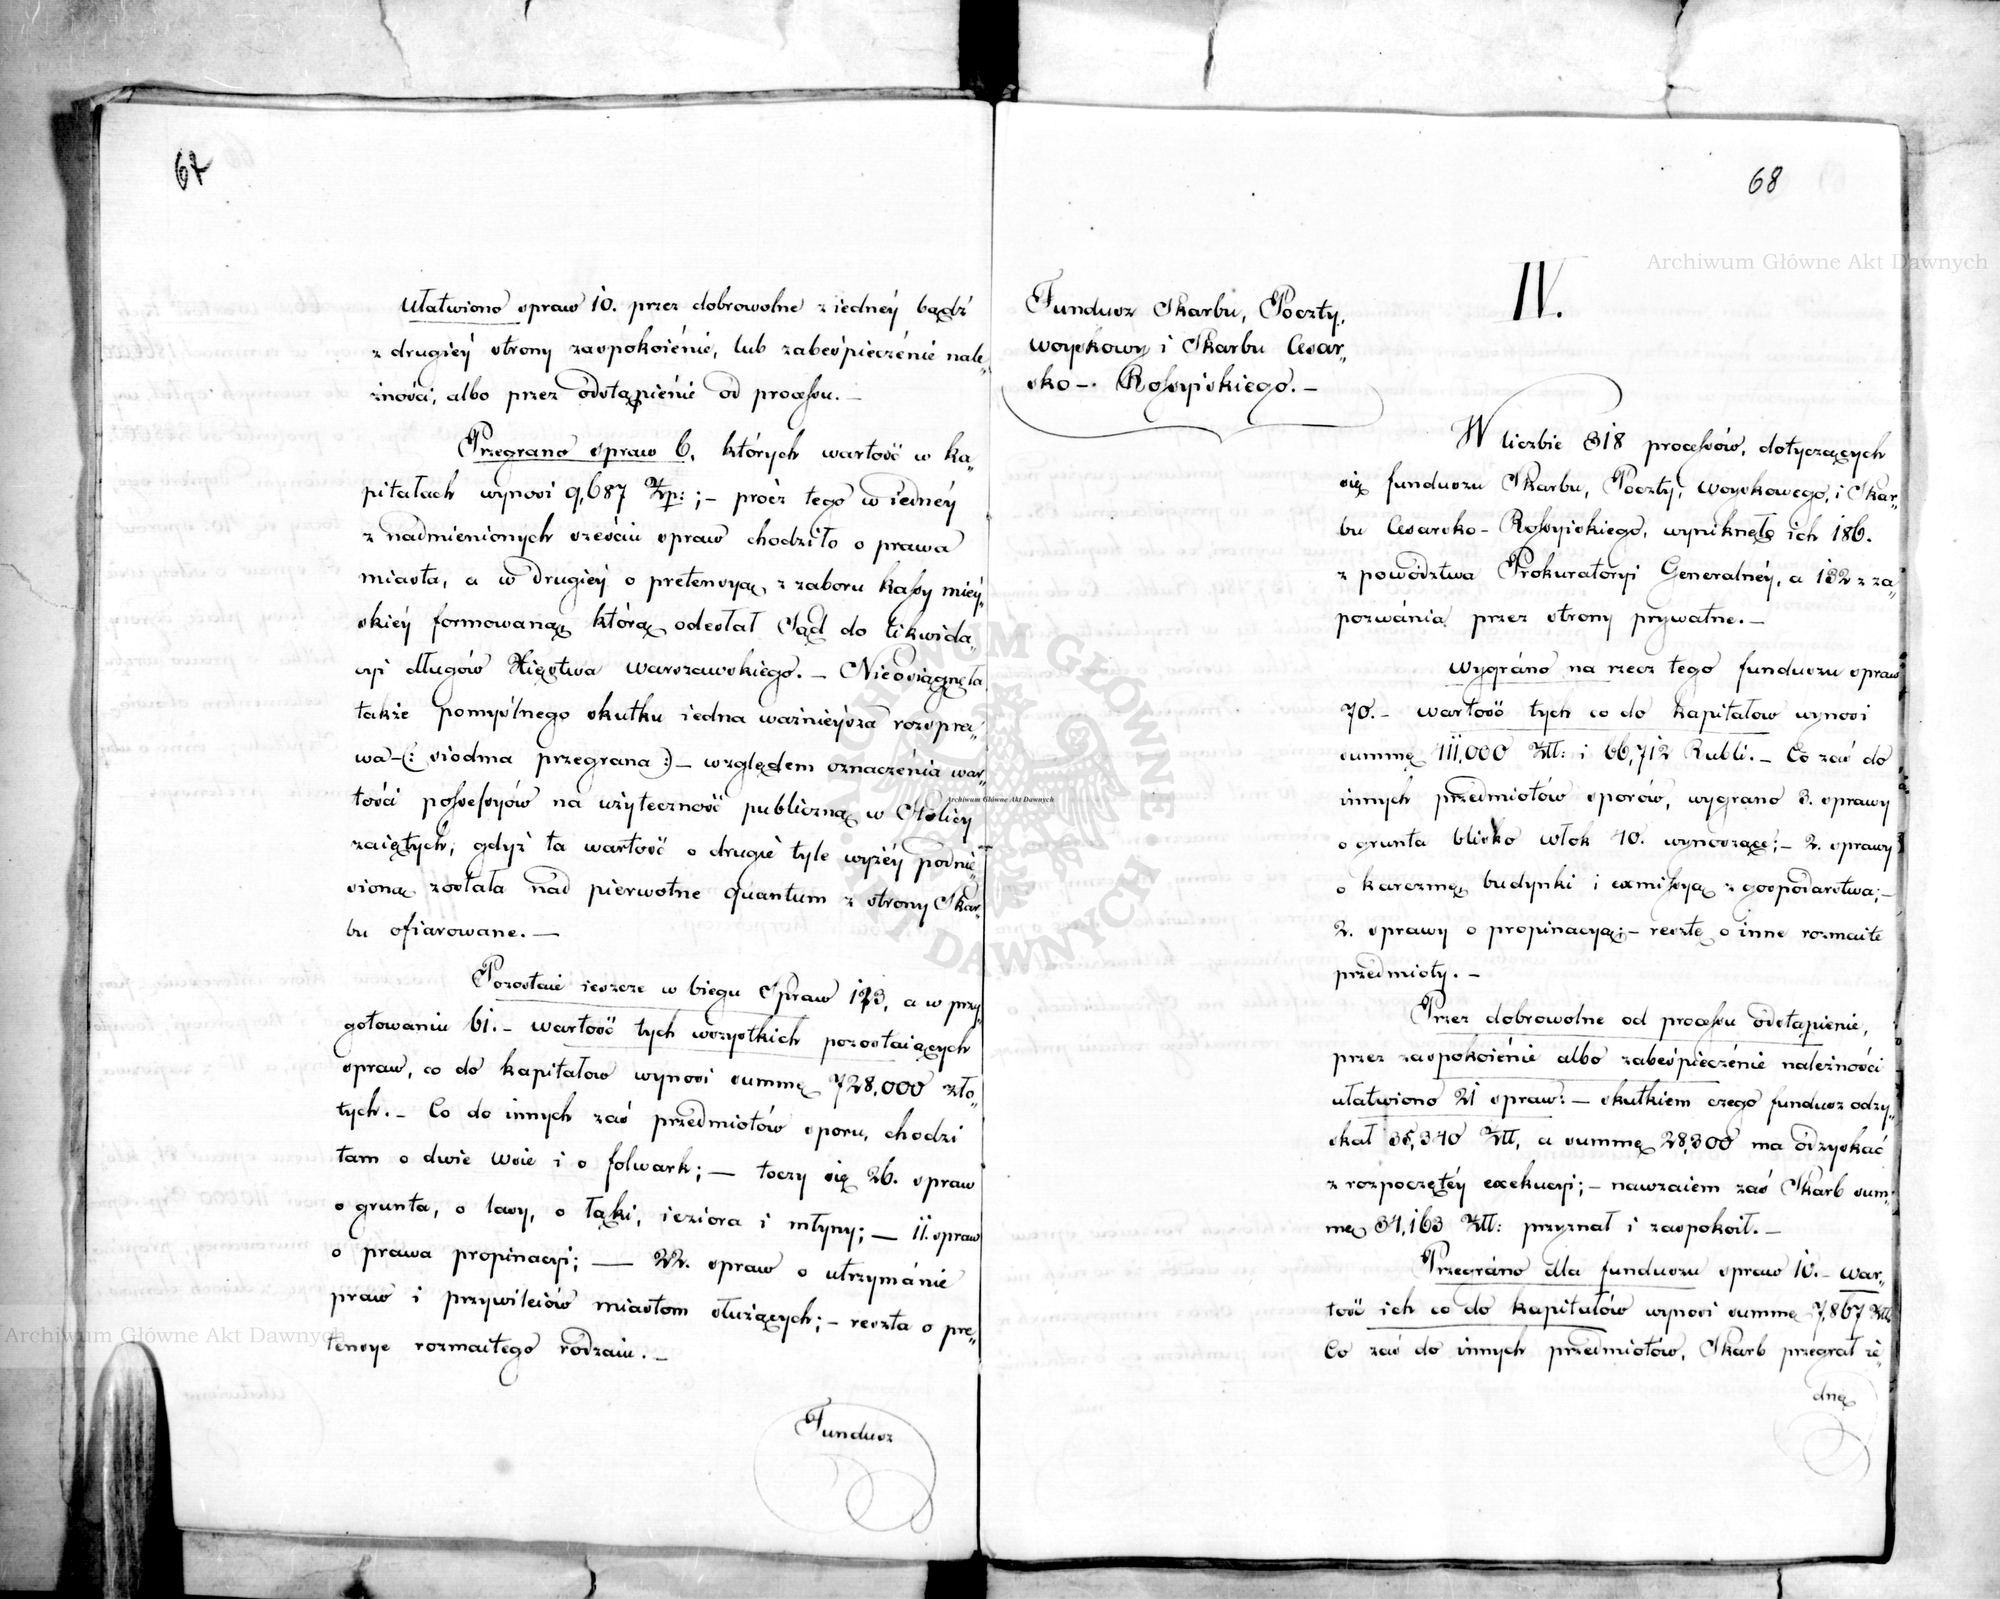 67
Ułatwiono spraw 10. przez dobrowolne z iednéy bądź
z drugiéy strony zaspokoienie, lub zabespieczénie nale„
żności, albo przez odstąpiénie od processu. —
Przegrano spraw 6, których wartość w ka„
pitałach wynosi 9,687 Złp: ; — prócz tego w iednéy
z nadmienionych sześciu spraw chodziło o prawa
miasta, a w drugiéy o pretensyą z zaboru kassy miéy„
skiéy formowaną którą odesłał Sąd do likwida„
cyi długów Xięstwa Warszawskiego. — Nieosiągnęła
także pomyślnego skutku iedna ważnieysza rozpra„
wa —(: siodma przegrana :)— względem oznaczénia war„
tości possessyów na użyteczność publiczną w Stolicy
zaiętych, gdyż ta wartość o drugie tyle wyżéy podnie„
sioną została nad pierwotne quantum z strony Skar„
bu ofiarowane. —
Pozostaie ieszcze w biegu Spraw 123, a w przy„
gotowaniu 61. — wartość tych wszystkich pozostaiących
spraw, co do kapitałow wynosi summę 728,000 zło„
tych. — Co do innych zaś przedmiotów sporu, chodzi
tam o dwie Wsie i o folwark; — toczy się 26. spraw
o grunta, o lasy, o łąki, ieziora i młyny; — 11. spraw
o prawa propinacyi; — 22. spraw o utrzymánie
praw i przywileiów miastom służących; — reszta o pre„
tensye rozmaitego rodzaiu. —
Fundusz
68
IV.
Fundusz Skarbu, Poczty,
Woyskowy i Skarbu Cesar„
sko — Rossyiskiego. —
W liczbie 318 processów, dotyczących
się funduszu Skarbu, Poczty, Woyskowego, i Skar„
bu Cesarsko — Rossyiskiego, wyniknęło ich 186.
z powództwa Prokuratoryi Generalnéy, a 132 z za„
pozwánia przez strony prywatne. —
Wygráno na rzecz tego funduszu spraw
70. — wartość tych co do kapitałow wynosi
summę 411,000 Złł: i 66,712 Rubli. — Co zaś do
innych przedmiotów sporów, wygrano 3. sprawy
o grunta blisko włok 40. wynoszące; — 2. sprawy
o karczmę, budynki i exmissyą z gospodarstwa; —
2. sprawy o propinacyą; — resztę o inne rozmaite
przedmioty. —
Przez dobrowolne od processu odstąpienie,
przez zaspokoiénie albo zabespieczénie należności
ułatwiono 21 spraw: — skutkiem czego fundusz odzy„
skał 35,340 Złł, a summę 28,300 ma odzyskać
z rozpoczętéy exekucyi; — nawzaiem zaś Skarb sum„
mę 34,163 Złł: przyznał i zaspokoił. —
Przegráno dla funduszu spraw 10. — war„
tość ich co do kapitałów wynosi summę 7,867 Złł
Co zaś do innych przedmiotów, Skarb przegrał ie„
dną
Archiwum Główne Akt Dawnych
Archiwum Główne Akt Dawnych
Archiwum Główne Akt Dawnych
ARCHIWUM GŁÓWNE · AKT DAWNYCH ·